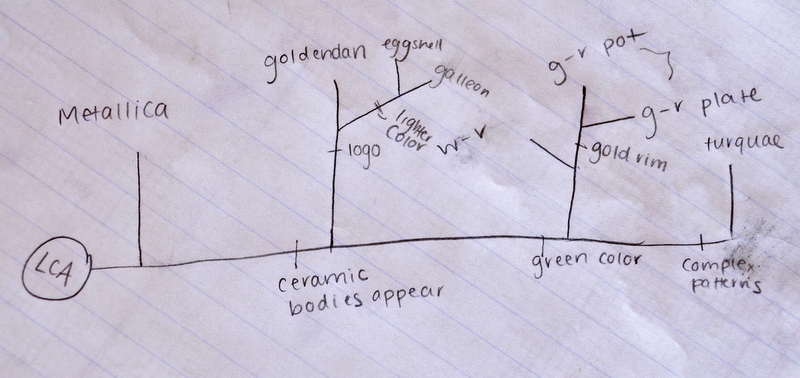 goldendan eggshell
g-r pot
galleon
Metallica
g-r plate
lighter
color
w-r
turquae
logo
gold rim
LCA
ceramic
bodies appear
green color
complex
patterns